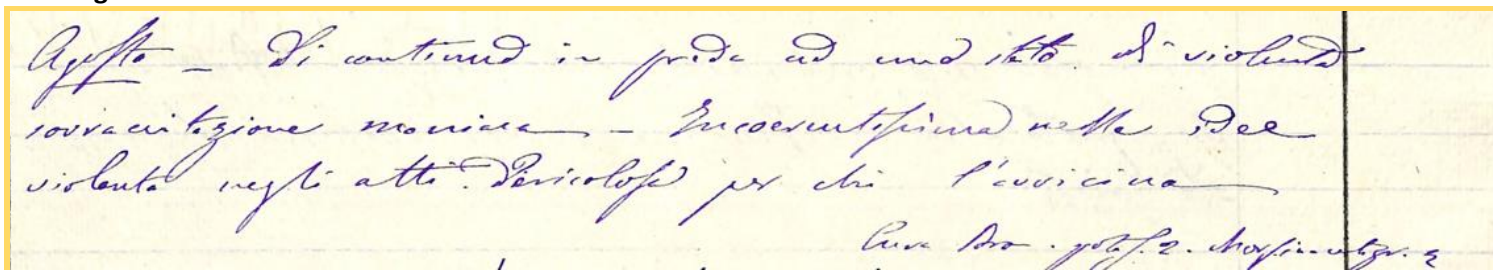 Agosto - Di continuo in preda ad uno stato di violenta
sovraccitazione maniaca - Incoerentissima nelle idee
violenta negli atti. Pericolosa per chi l'avvicina
Cura Bro. potas. 2. Morfin. centigr. 2